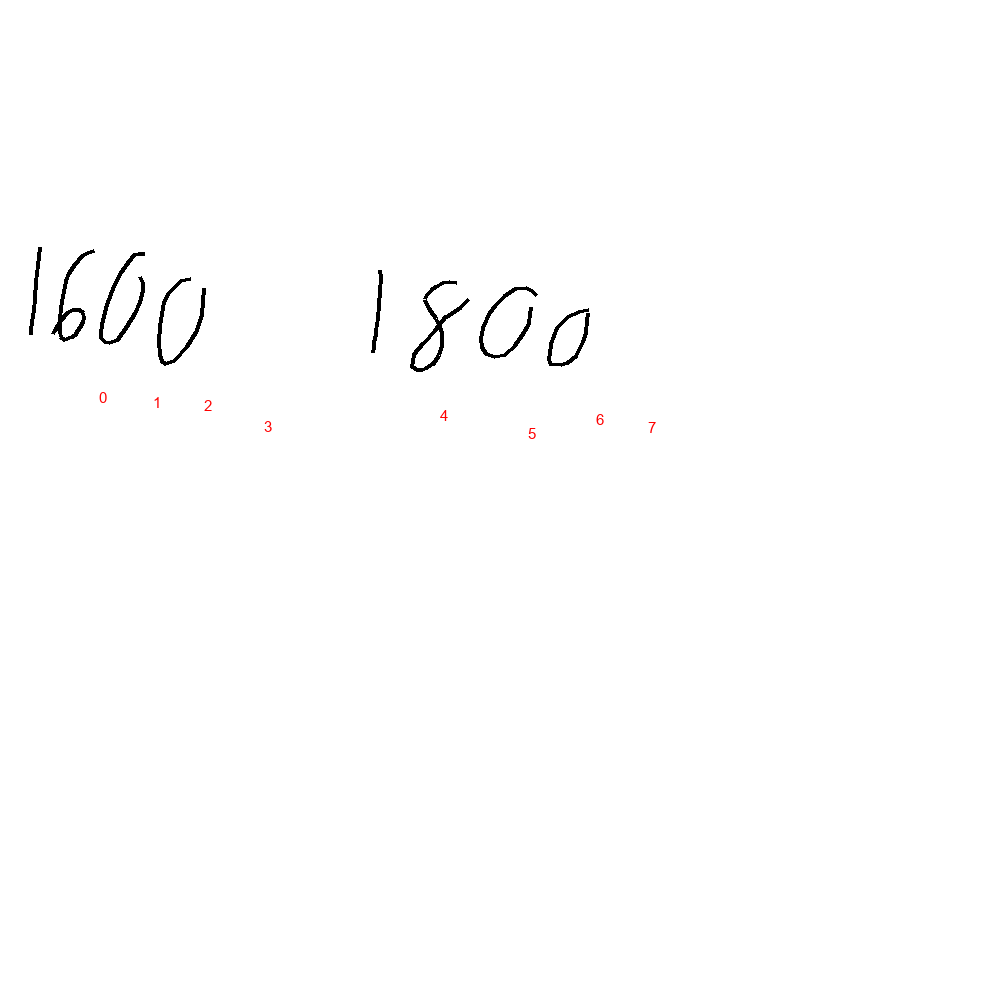 1600 1800
0 1 2 3 4 5 6 7